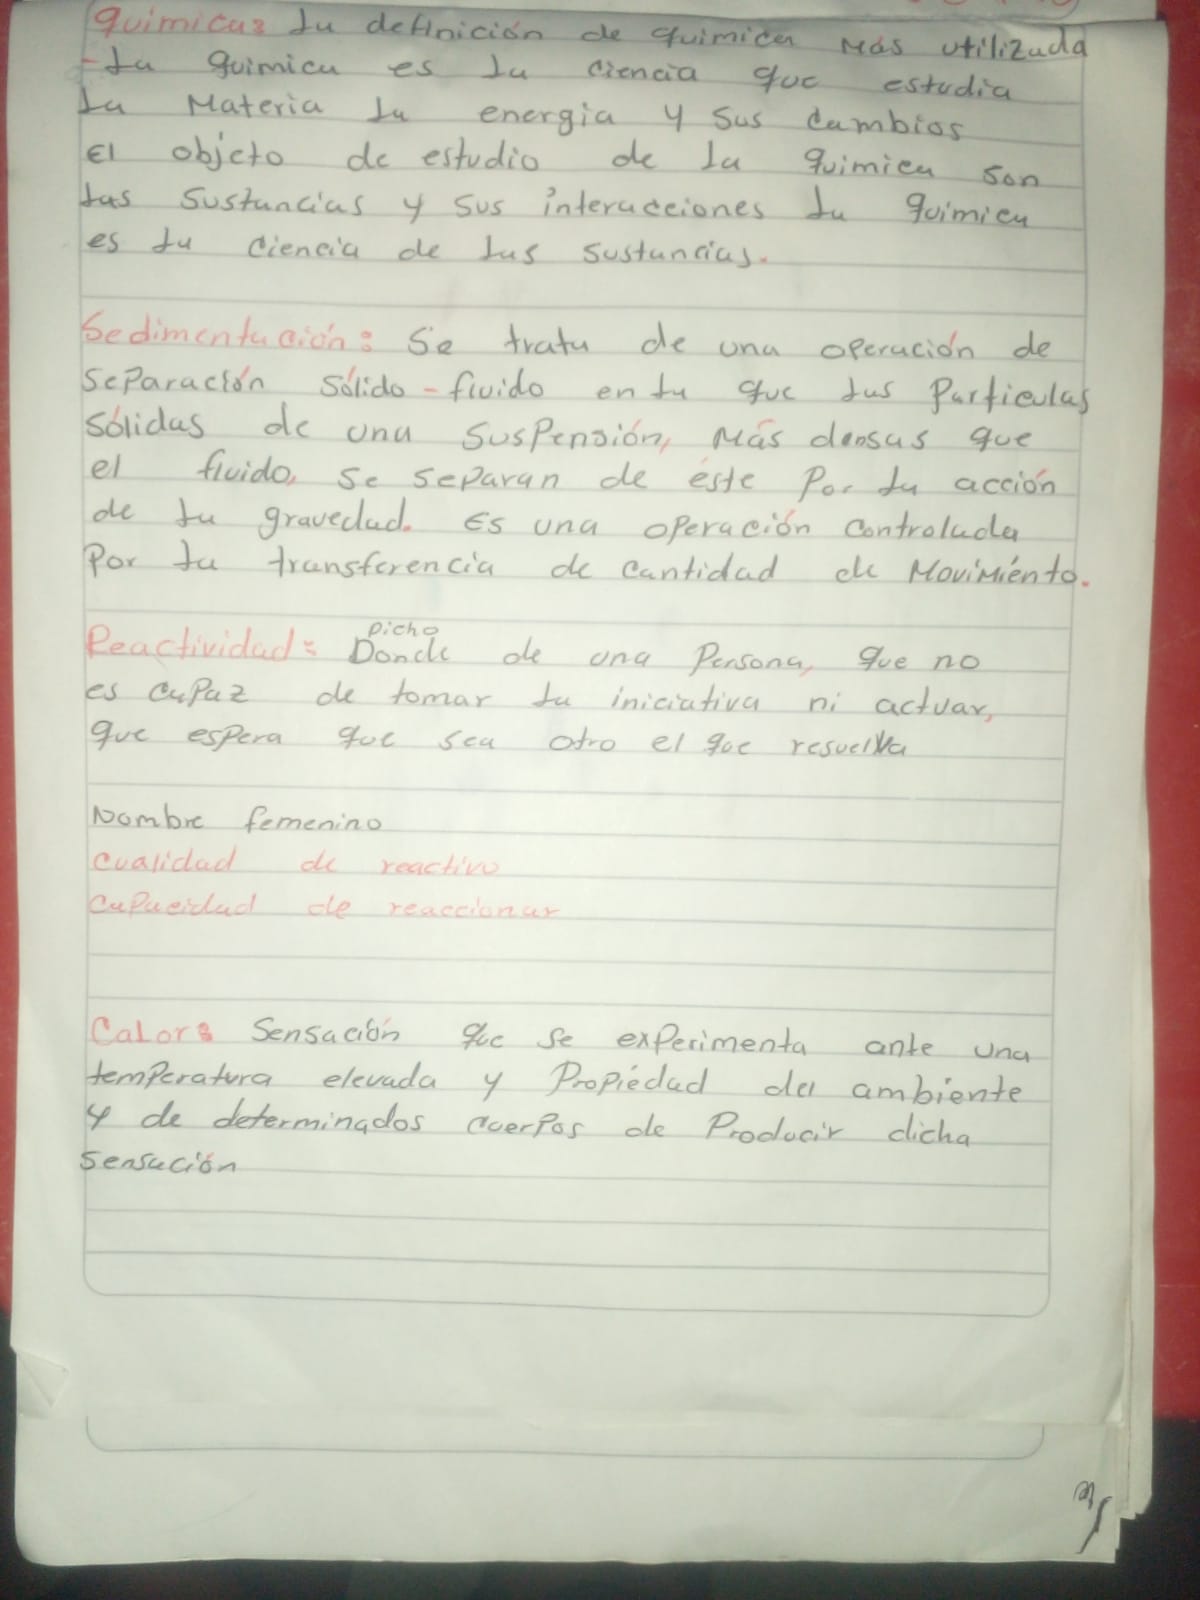 Química: La definición de química más utilizada
- La química es la ciencia que estudia
La Materia la energía y sus cambios
El objeto de estudio de la química son
las sustancias y sus interacciones la química
es la ciencia de las sustancias.
Sedimentación: Se trata de una operación de
separación sólido - fluido en la que las partículas
sólidas de una suspensión, más densas que
el fluido, se separan de éste por la acción
de la gravedad. Es una operación controlada
por la transferencia de cantidad de Movimiénto.
Dicho
Reactividad: Donde de una persona, que no
es capaz de tomar la iniciativa ni actuar,
que espera que sea otro el que resuelva
Nombre femenino
cualidad de reactivo
capacidad de reaccionar
Calor: Sensación que se experimenta ante una
temperatura elevada y Propiedad del ambiente
y de determinados cuerpos de Producir dicha
sensación